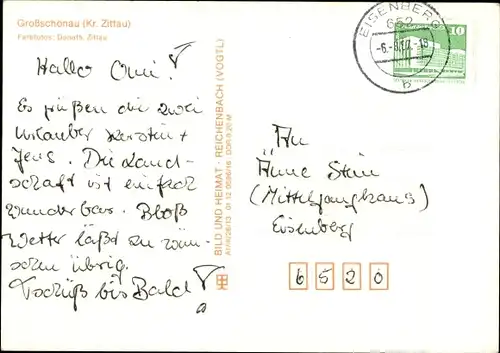 Großschönau (Kr. Zittau)
Farbfotos: Donath, Zittau
Hallo Omi!
Es grüßen die zwei
Urlauber Kerstin +
Jens. Die Land-
schaft ist einfach
wunderbar. Bloß
Wetter läßt zu wün-
schen übrig.
Tschüß bis Bald!
BILD UND HEIMAT · REICHENBACH (VOGTL)
EISENBERG
652
b
10
An
Anne Stein
(Mittelganghaus)
Eisenberg
6520